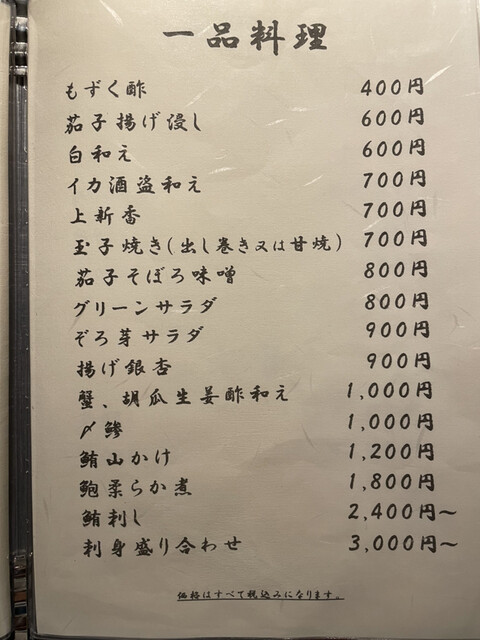 一品料理
もずく酢 400円
茄子揚げ浸し 600円
白和え 600円
イカ酒盗和え 700円
上新香 700円
玉子焼き(出し巻き又は甘焼) 700円
茄子そぼろ味噌 800円
グリーンサラダ 800円
ぞろ芽サラダ 900円
揚げ銀杏 900円
蟹、胡瓜生姜酢和え 1,000円
〆鯵 1,000円
鮪山かけ 1,200円
鮑柔らか煮 1,800円
鮪刺し 2,400円〜
刺身盛り合わせ 3,000円〜
価格はすべて税込みになります。